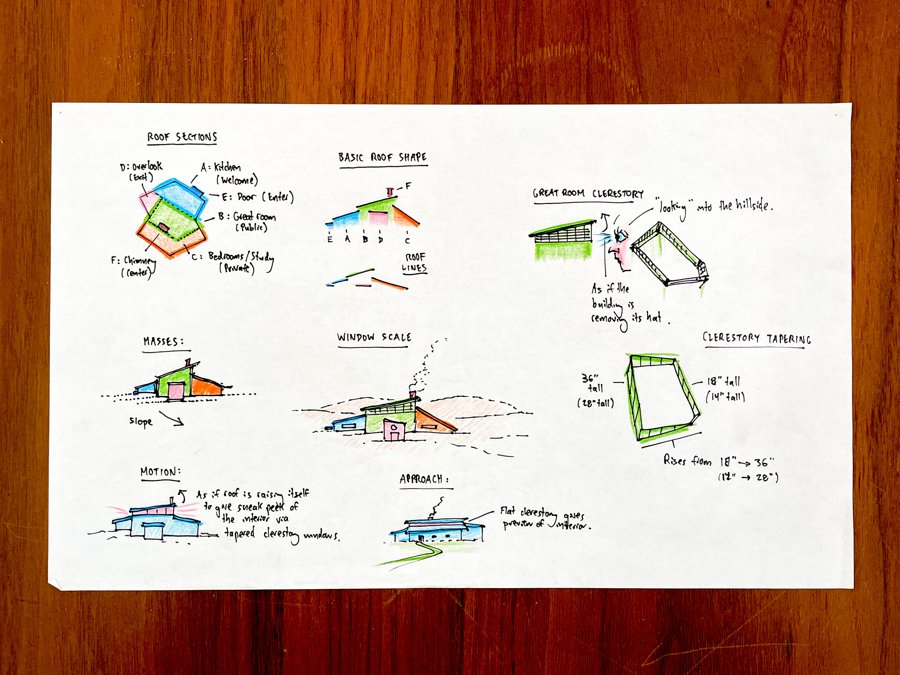 ROOF SECTIONS
D: Overlook
(Exit)
A: Kitchen
(Welcome)
E: Door (Enter)
B: Great room
(Public)
C: Bedrooms/Study
(Private)
F: Chimney
(Center)
BASIC ROOF SHAPE
F
E A B D C
ROOF
LINES
GREAT ROOM CLERESTORY
"looking" into the hillside.
As if the
building is
removing its hat.
MASSES:
Slope
WINDOW SCALE
CLERESTORY TAPERING
36"
tall
(28" tall)
18" tall
(14" tall)
Rises from 18" → 36"
(14" → 28")
MOTION:
As if roof is raising itself
to give sneak peek of
the interior via
tapered clerestory windows.
APPROACH:
Flat clerestory gives
preview of interior.